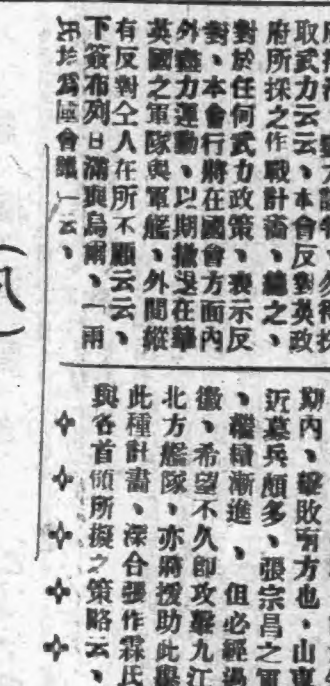 取武力云云、本會反對英政
府所採之作戰計畵、總之、
對於任何武力政策、表示反
對、本會行將在國會方面內
外盡力運動、以期撤退在華
英國之軍隊與軍艦、外間縱
有反對仝人在所不顧云云、
下簽布列日滿與烏爾、「兩
爲國會議」云、
期內、擊敗南方也、山東
近募兵頗多、張宗昌之軍
、繼續漸進、但必經過
徽、希望不久即攻擊九江
北方艦隊、亦將援助此舉
此種計畵、深合張作霖氏
與各首領所擬之策略云、